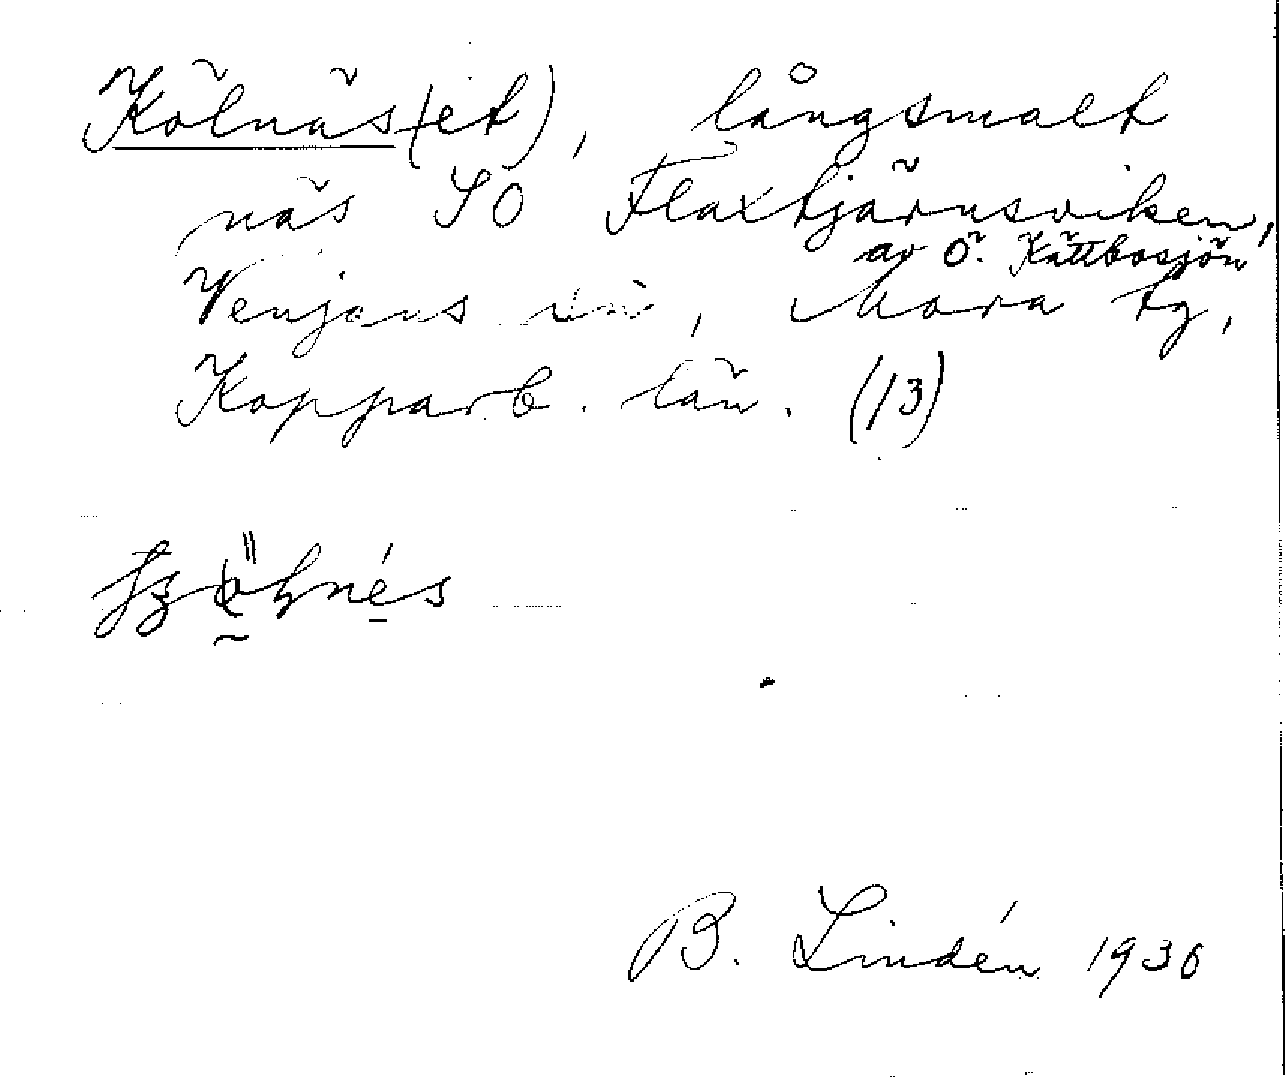 Kölnäs(et), långsmalt
näs SÖ Flaxtjärnsviken,
av Ö. Kättbosjön
Venjans sn, Mora tg,
Kopparb. län. (13)
B. Lindén 1936